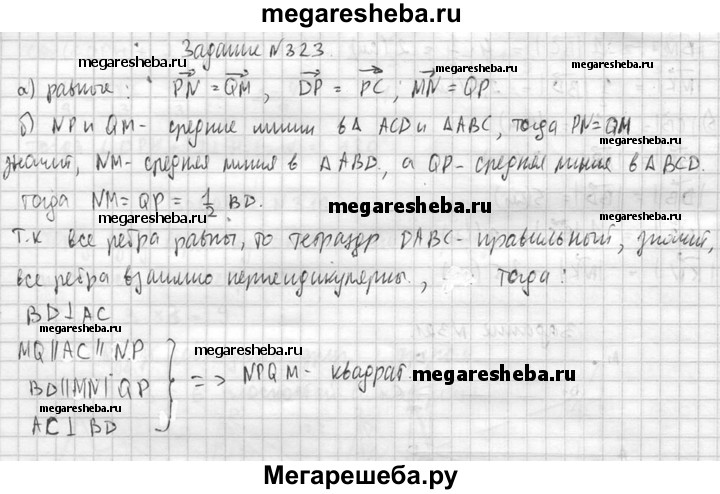 megaresheba.ru
Задание N323.
а) равные: PN = QM, DP = PC; MN = QP.
megaresheba.ru
megaresheba.ru
б) NP и QM - средние линии в Δ ACD и ΔABC, тогда PN=QM
значит, NM - средняя линия в ΔABD, а QP - средняя линия в ΔBCD.
megaresheba.ru
megaresheba.ru
тогда NM = QP = 1/2 BD.
megaresheba.ru
megaresheba.ru
Т.к все ребра равны, то тетраэдр DABC - правильный, значит,
megaresheba.ru
все ребра взаимно перпендикулярны, тогда:
BD⊥AC
megaresheba.ru
MQ||AC||NP
megaresheba.ru
BD||MN||QP => NPQM - квадрат.
megaresheba.ru
megaresheba.ru
AC⊥BD
Мегарешеба.ру